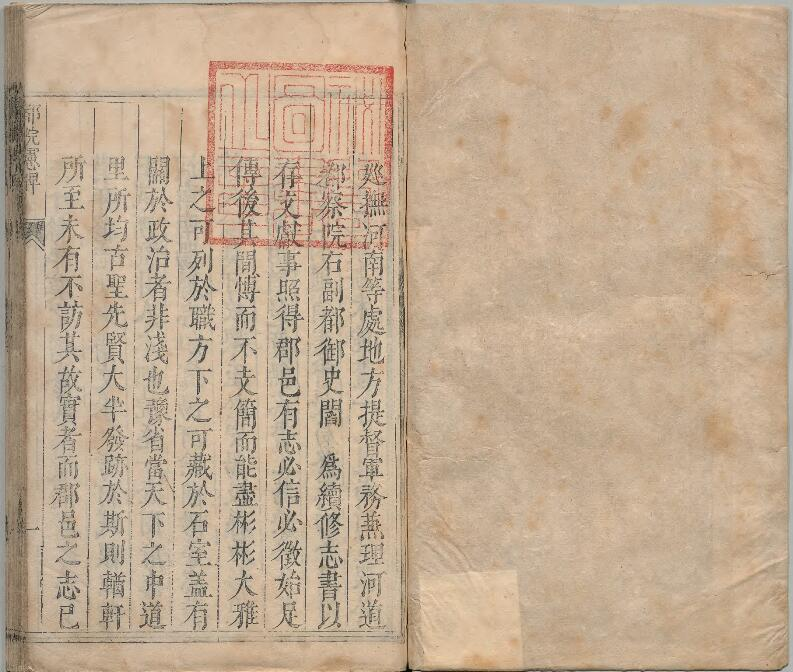 廵撫河南等處地方提督軍務兼理河道
都察院右副都御史閻　為續修志書以
存文獻事照得郡邑有志必信必徵始足
傳後其間博而不支簡而能盡彬彬大雅
上之可列於職方下之可藏於石室蓋有
關於政治者非淺也豫省當天下之中道
里所均古聖先賢大半發跡於斯則輶軒
所至未有不訪其故實者而郡邑之志已
都院憲牌
一